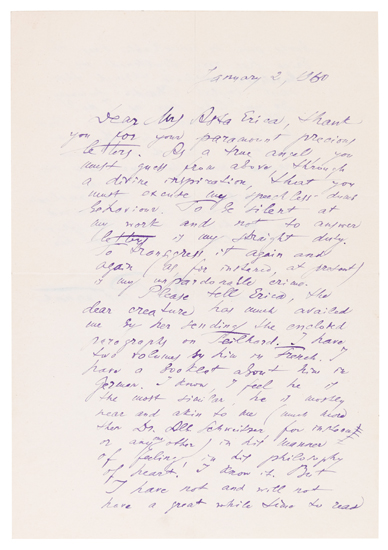 January 2, 1960
Dear Mrs Rita Erica, thank
you for your paramount precious
letters. As a true angel you
must guess from above, through
a divine inspiration, that you
must excuse my speechless dumb
behaviour. To be silent at
my work and not to answer
letters is my straight duty.
To transgress it again and
again (as for instance, at present)
is my unpardonable crime.
Please tell Erica, the
dear creature has much availed
me by her sending the enclosed
on Teilhard. I have
two volumes by him in French. I
have a booklet about him in
German. I know, I feel he is
the most similar, he is mostly
near and akin to me (much more
than Dr. Schweitzer for instance
or any other) in his manner
of feeling, in his philosophy
of heart! I know it. But
I have not and will not
have a great while time to read